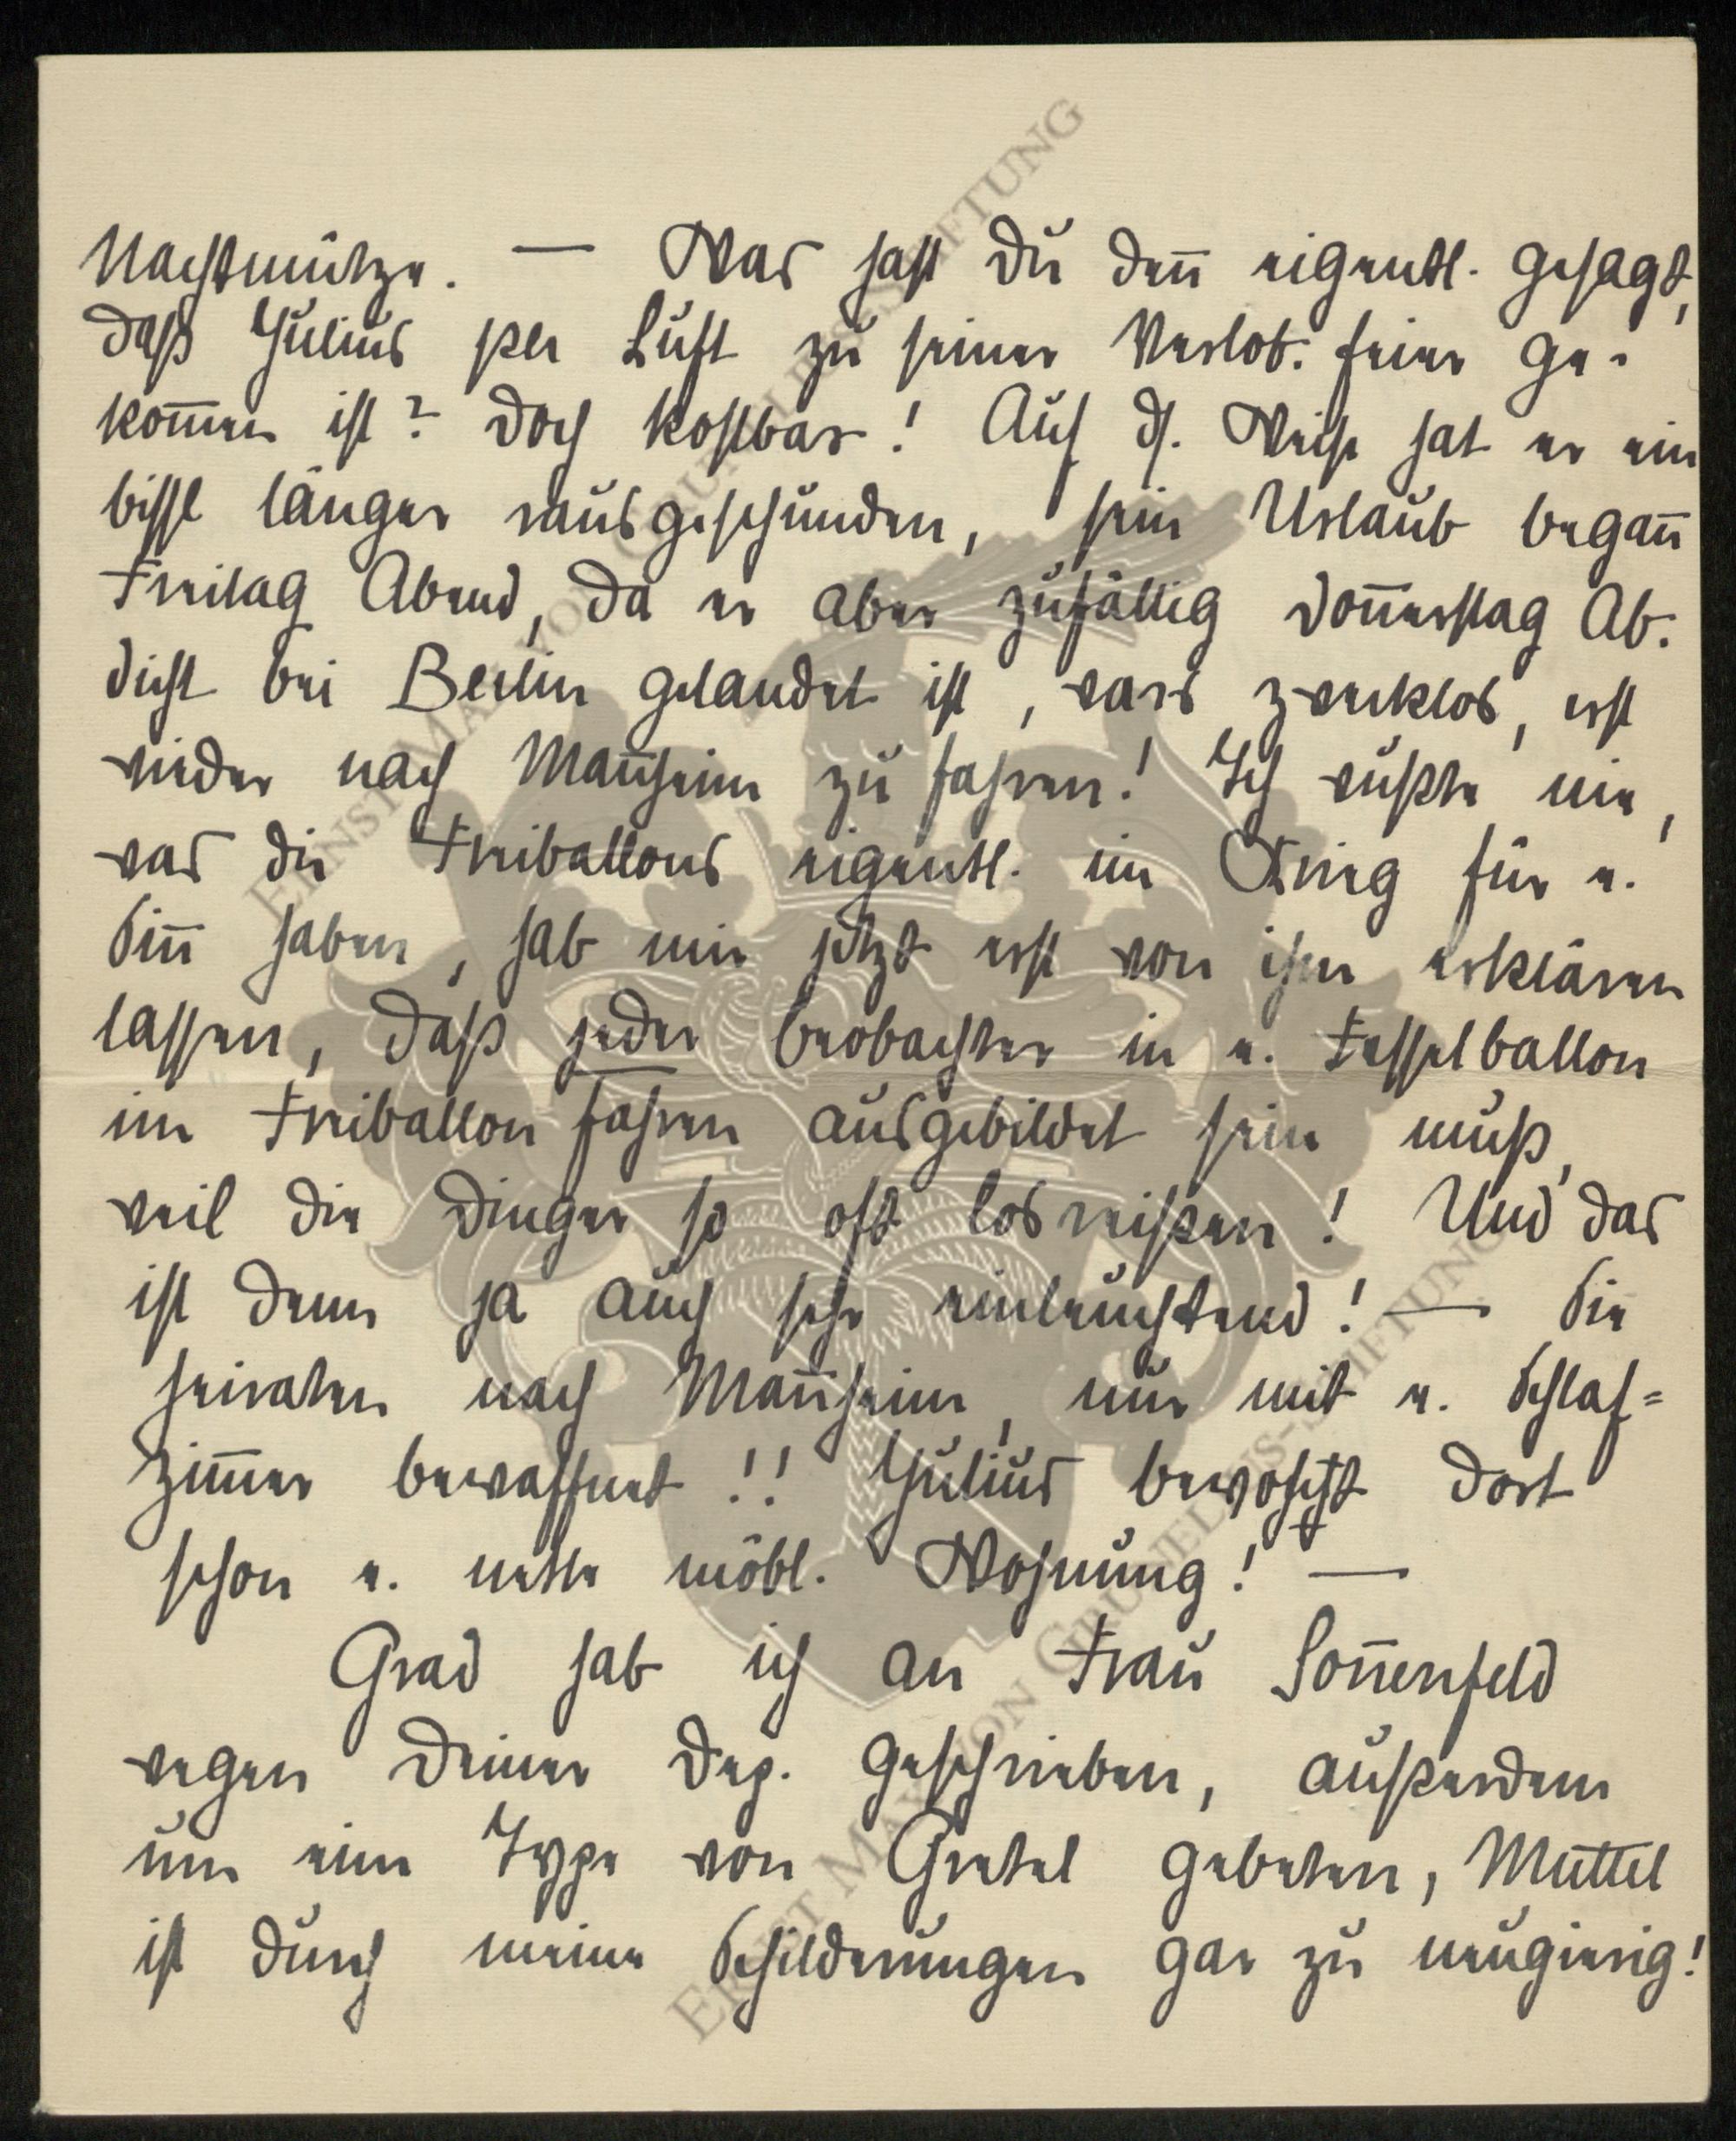 Nachtmütze. — Was hast Du den̄ eigentl. gesagt,
daß Julius per Luft zu seiner Verlob. feier ge-
kom̄en ist? Doch kostbar! Auf d. Weise hat er ein
bissl länger rausgeschunden, sein Urlaub began̄
Freitag Abend, da er aber zufällig Don̄erstag Ab.
dicht bei Berlin gelandet ist, wars zwecklos, erst
wieder nach Man̄heim zu fahren! Ich wußte nie,
was die Freiballons eigentl. im Krieg für e.
Sin̄ haben, hab mir jetzt erst von ihm erklären
lassen, daß jeder Beobachter in e. Fesselballon
im Freiballon fahren ausgebildet sein muß,
weil die Dinger so oft losreißen! Und das
ist denn ja auch sehr einleuchtend! — Sie
heiraten nach Man̄heim, nur mit e. Schlaf=
zim̄er bewaffnet!! Julius bewohnt dort
schon e. nette möbl. Wohnung! —
Grad hab ich an Frau Son̄enfeld
wegen Deiner Dep. geschrieben, außerdem
um eine Type von Gretel gebeten, Muttel
ist durch meine Schilderungen gar zu neugierig!
ERNST MAX VON GRUNELIUS-STIFTUNG
ERNST MAX VON GRUNELIUS-STIFTUNG